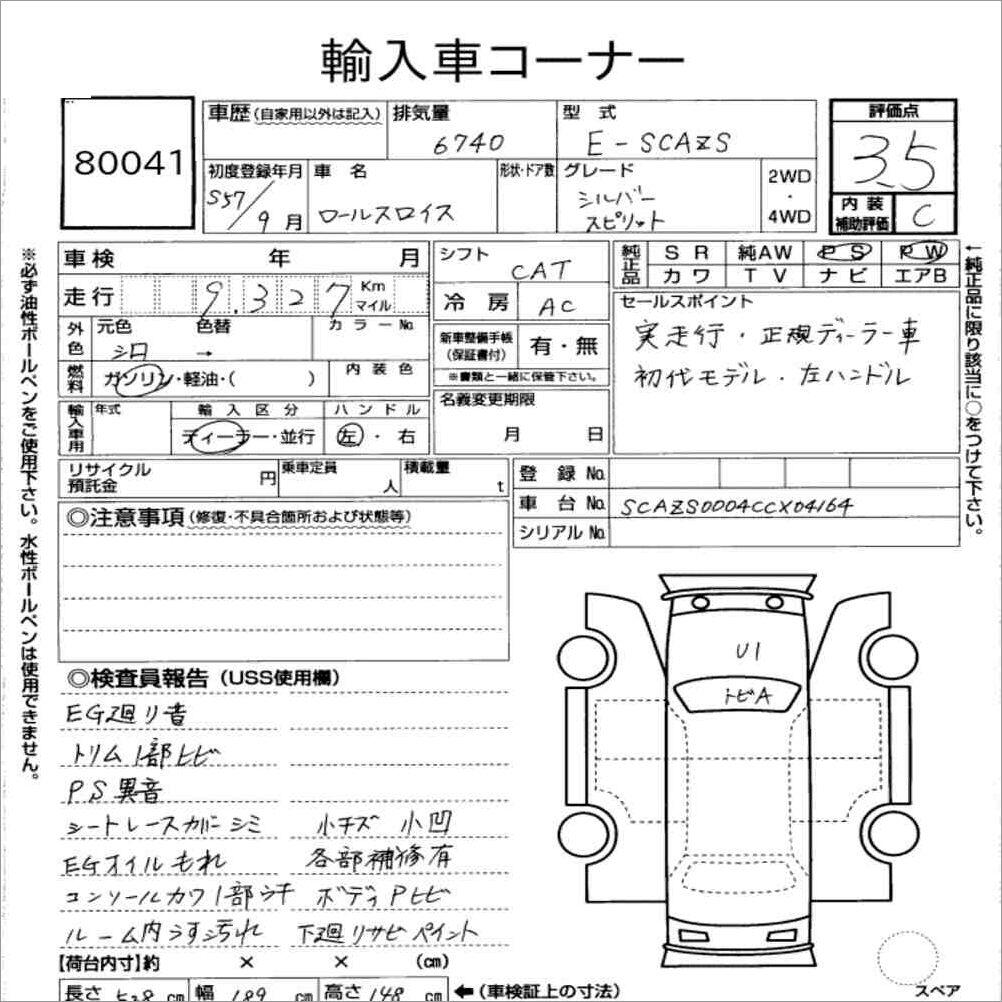 輸入車コーナー
80041
車歴(自家用以外は記入) 排気量 6740 型式 E-SCAZS
初度登録年月 S57/9月 車名 ロールスロイス 形状・ドア数 グレード シルバースピリット 2WD・4WD
評価点 3.5
内装補助評価 C
※必ず油性ボールペンをご使用下さい。水性ボールペンは使用できません。
車検 年 月
走行 9.327 Km マイル
外色 元色 シロ 色替 → カラーNo.
燃料 ガソリン・軽油・( ) 内装色
輸入車用 年式 輸入区分 ディーラー・並行 ハンドル 左・右
シフト CAT
冷房 AC
新車整備手帳(保証書付) 有・無
※書類と一緒に保管下さい。
名義変更期限 月 日
純正品 SR 純AW PS PW
カワ TV ナビ エアB
セールスポイント
実走行・正規ディーラー車
初代モデル・左ハンドル
←純正品に限り該当に○をつけて下さい。
リサイクル預託金 円 乗車定員 人 積載量 t
登録No.
車台No. SCAZS0004CCX04164
シリアルNo.
◎注意事項(修復・不具合箇所および状態等)
◎検査員報告(USS使用欄)
EG廻り音
トリム1部ヒビ
PS異音
シートレースカバーシミ 小キズ 小凹
EGオイルもれ 各部補修有
コンソールカワ1部うキ ボディPヒビ
ルーム内うす汚れ 下廻りサビペイント
U1
トビA
【荷台内寸】約 × × (cm)
長さ 528 cm 幅 189 cm 高さ 148 cm ←(車検証上の寸法)
スペア